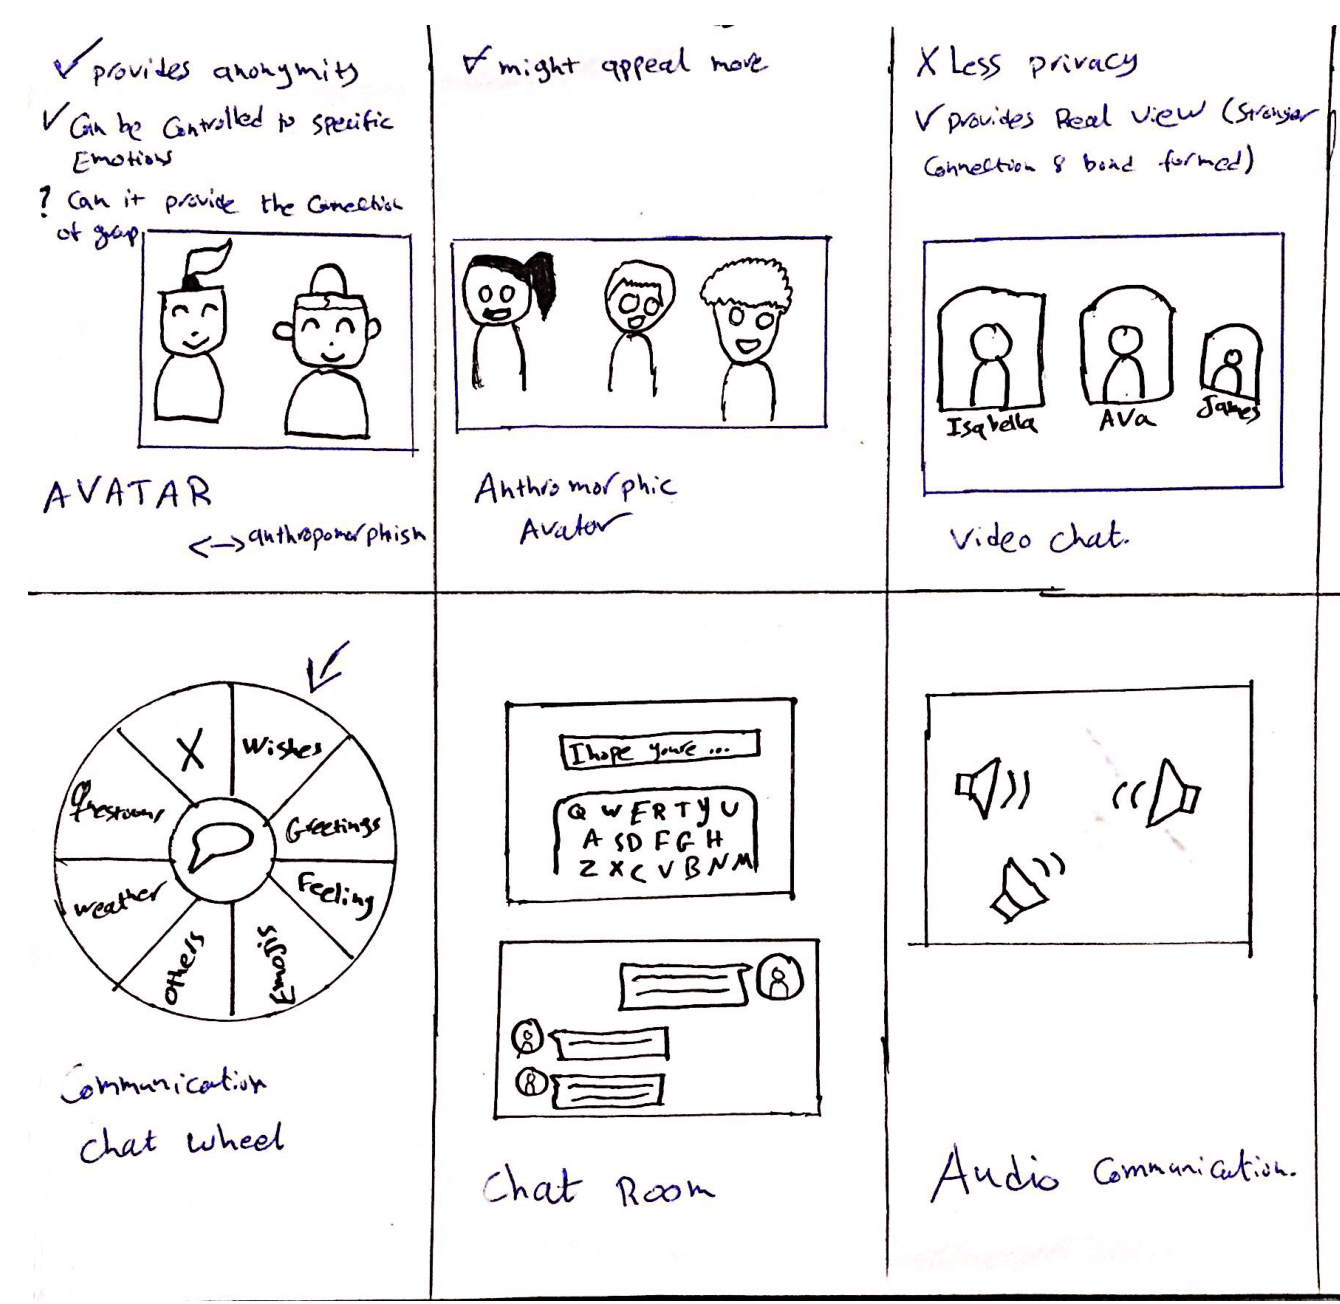 ✓ provides anonymity
✓ Can be Controlled to specific
Emotions
? Can it provide the Connection
of group
AVATAR
<-> anthropomorphism
✓ might appeal more
Anthromorphic
Avator
X Less privacy
✓ provides Real view (Stronger
Connection & bond formed)
Isabella
AVa
James
Video chat.
X
Wishes
Greetings
Feeling
Emojis
Others
Weather
Questions
Communication
chat wheel
I hope you're ...
Q W E R T Y U
A S D F G H
Z X C V B N M
Chat Room
Audio Communication.